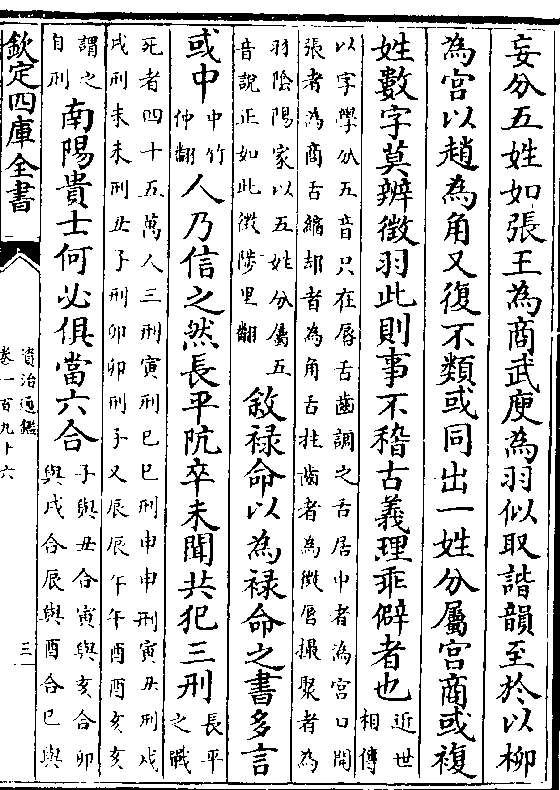 妄分五姓如張王為商武庾為羽似取諧韻至於以柳
為宮以趙為角又復不類或同出一姓分屬宮商或複
姓數字莫辨徵羽此則事不稽古義理乖僻者也近世
相傳
以字學分五音只在脣舌齒調之舌居中者為宮口開
張者為商舌縮却者為角舌拄齒者為徵脣撮聚者為
羽陰陽家以五姓分屬五
音說正如此徵陟里翻
敘禄命以為禄命之書多言
或中中竹
仲翻
人乃信之然長平阬卒未聞共犯三刑長平
之戰
死者四十五萬人三刑寅刑巳巳刑申申刑寅丑刑戌
戌刑未未刑丑子刑卯卯刑子又辰辰午午酉酉亥亥
謂之
自刑
南陽貴士何必俱當六合子與丑合寅與亥合卯
與戌合辰與酉合巳與
欽定四庫全書
資治通鑑
卷一百九十六
三